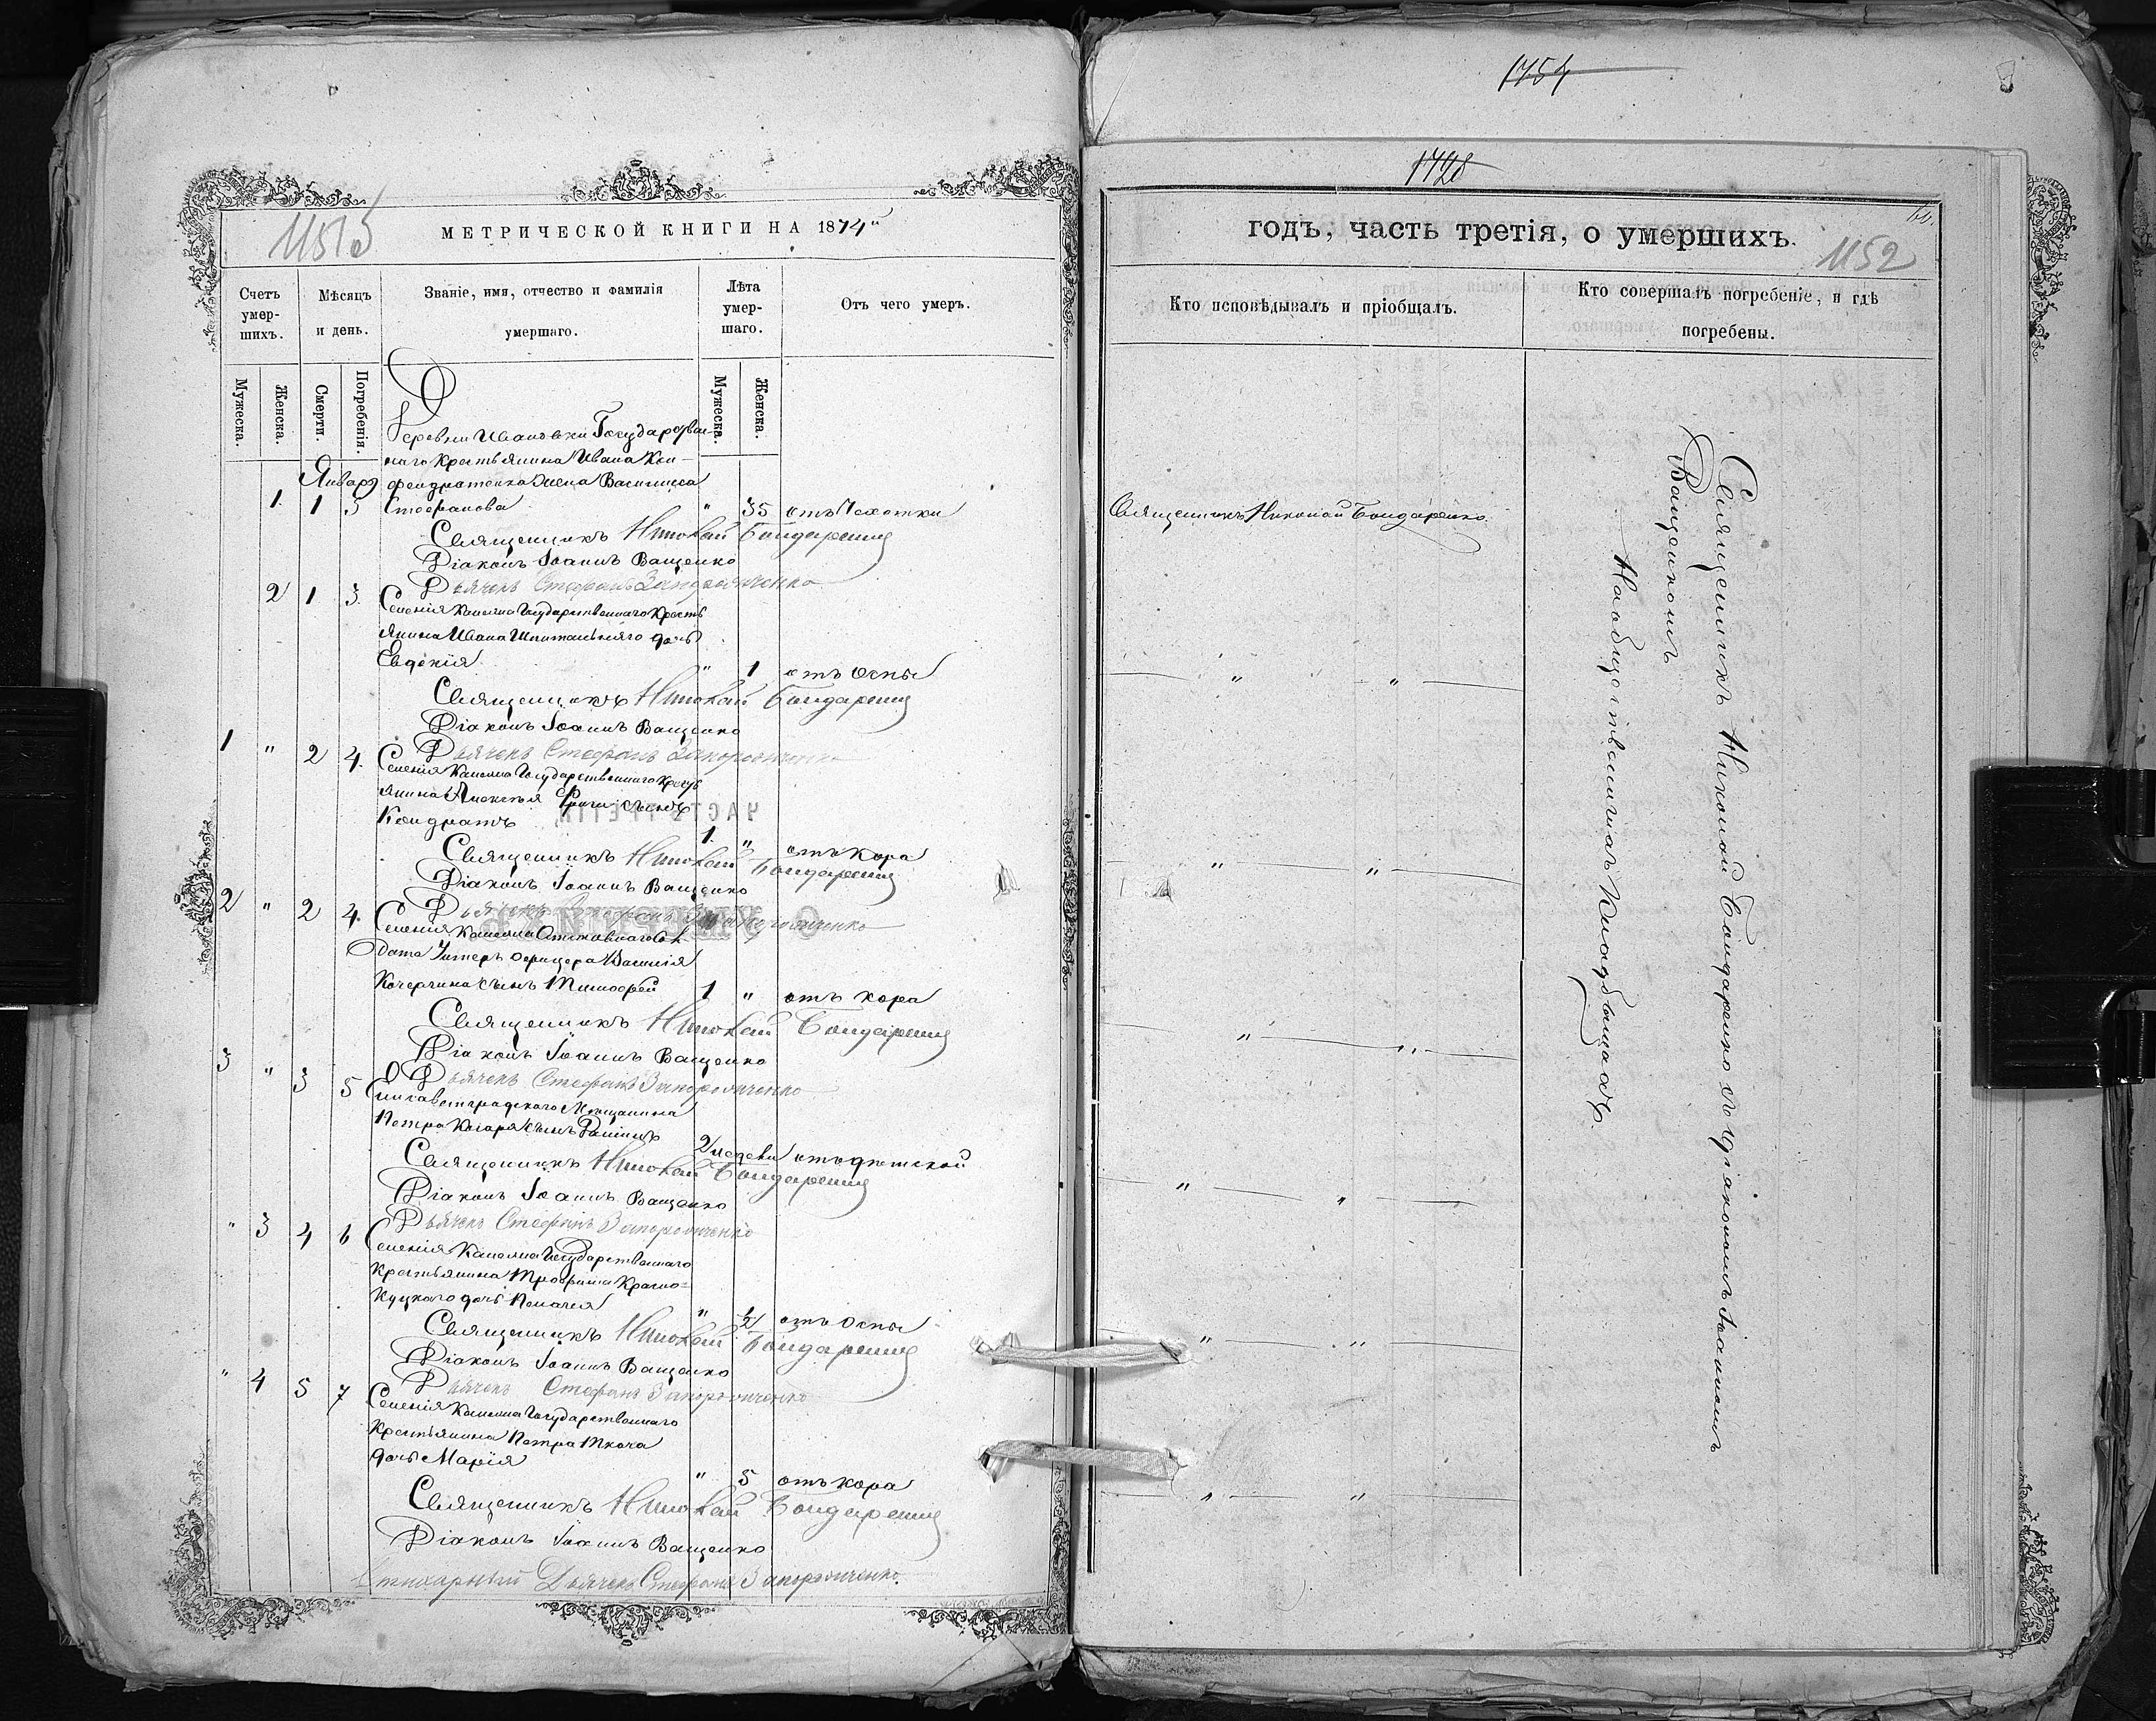 1151
МЕТРИЧЕСКОЙ КНИГИ НА 1874й
Счетъ умер-шихъ.
Мѣсяцъ и день.
Званіе, имя, отчество и фамилія умершаго.
Лѣта умер-шаго.
Отъ чего умеръ.
Мужеска.
Женска.
Смерти.
Погребенія.
Мужеска.
Женска.
Деревни Ивановки Государствен-
наго крестьянина Ивана Кон-
Январь
дратенка жена Василиса
1 1 3 Стефанова " 35 отъ Чахотки
Священникъ Николай Бондаренко
Діаконъ Іоаннъ Ващенко
Дьячекъ Стефанъ Запорожченко
2 1 3 Селенія Государственнаго Кресть
янина Ивана Шпитальняго дочь
Евдокія " 1 отъ Оспы
Священникъ Николай Бондаренко
Діаконъ Іоаннъ Ващенко
Дьячекъ Стефанъ Запорожченко
1 " 2 4. Селенія Государственнаго Кресть
янина Алексѣя сынъ
Кондратъ 1. " отъ кора
Священникъ Николай Бондаренко
Діаконъ Іоаннъ Ващенко
Дьячекъ Стефанъ Запорожченко
2 " 2 4. Селенія
Унтеръ офицера Василія
сынъ Тимофей 1 " отъ кора
Священникъ Николай Бондаренко
Діаконъ Іоаннъ Ващенко
Дьячекъ Стефанъ Запорожченко
3 " 3 5 Елисаветградскаго Мѣщанина
Петра сынъ 2 недели отъ дѣтской
Священникъ Николай Бондаренко
Діаконъ Іоаннъ Ващенко
Дьячекъ Стефанъ Запорожченко
" 3 4 6 Селенія Государственнаго
Крестьянина Трофима Красно-
куцкаго дочь Пелагея " 1/2 отъ Оспы
Священникъ Николай Бондаренко
Діаконъ Іоаннъ Ващенко
Дьячекъ Стефанъ Запорожченко
" 4 5 7 Селенія Государственнаго
Крестьянина Петра Ткача
дочь Марія " 5 отъ кора
Священникъ Николай Бондаренко
Діаконъ Іоаннъ Ващенко
Стихарный Дьячекъ Стефанъ Запорожченко.
1754
1728
годъ, часть третія, о умершихъ.
1152
Кто исповѣдывалъ и пріобщалъ.
Кто совершалъ погребеніе, и гдѣ погребены.
Священникъ Николай Бондаренко.
Священникъ Николай Бондаренко съ діакономъ Іоанномъ
Ващенкомъ
На общественномъ кладбищахъ.